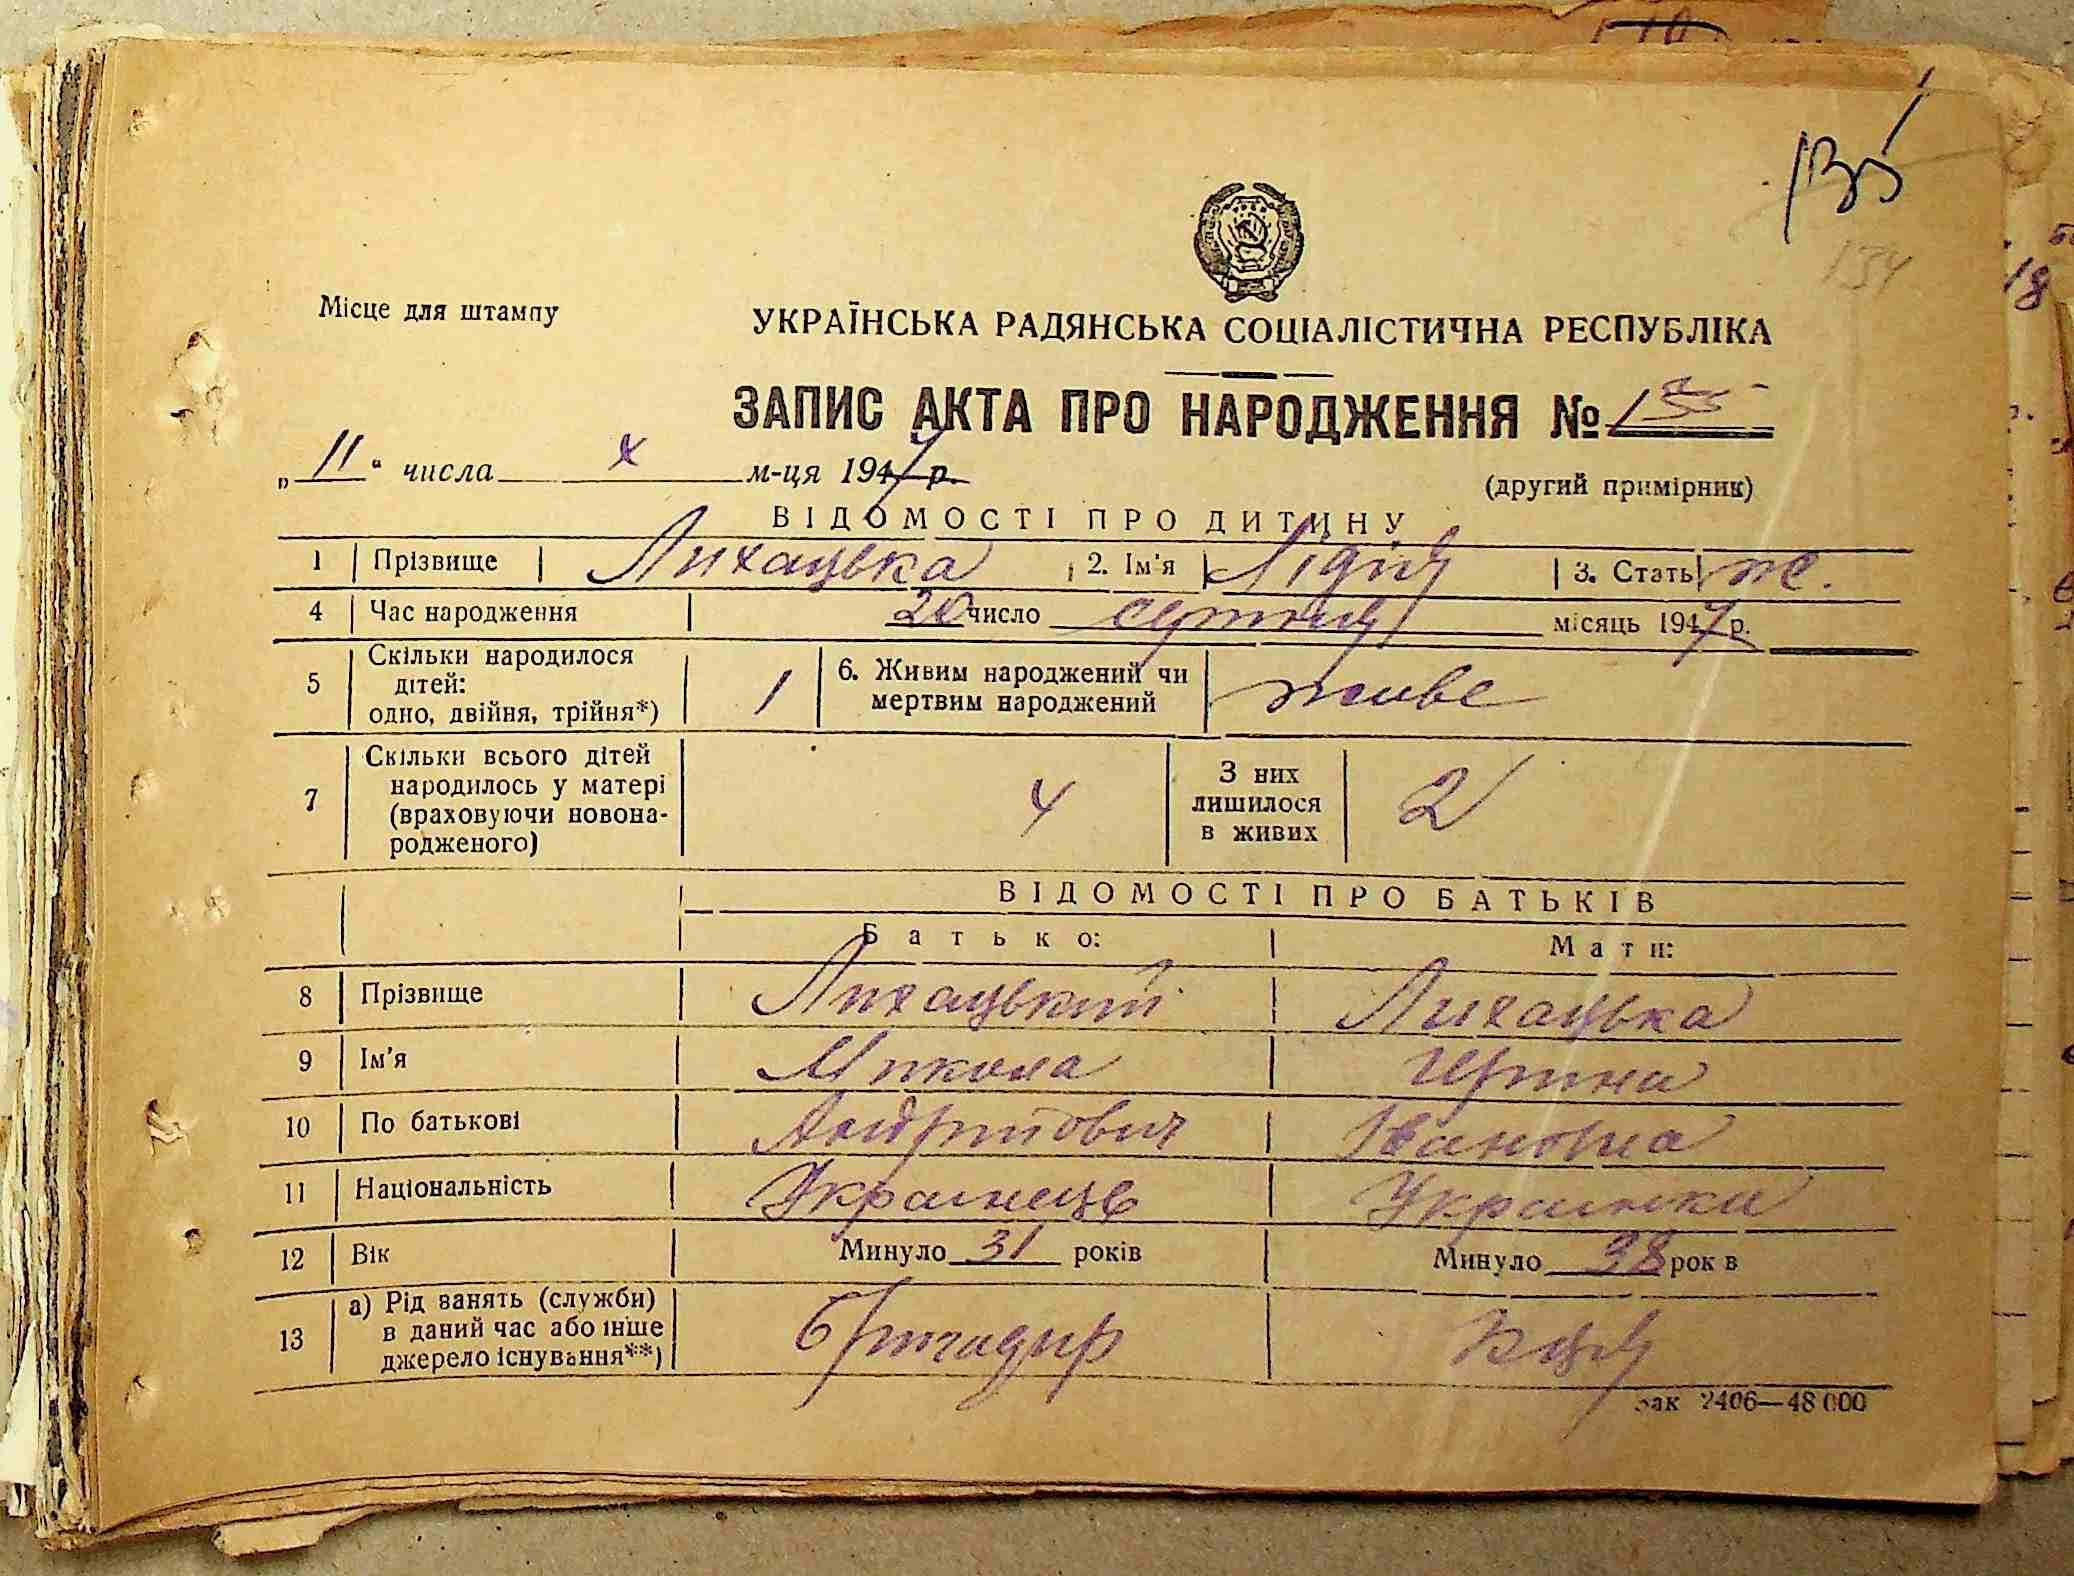 135
134
Місце для штампу
УКРАЇНСЬКА РАДЯНСЬКА СОЦІАЛІСТИЧНА РЕСПУБЛІКА
ЗАПИС АКТА ПРО НАРОДЖЕННЯ №
„11“ числа X м-ця 1947 р.
(другий примірник)
ВІДОМОСТІ ПРО ДИТИНУ
1 Прізвище Лихацька 2. Ім'я Лідія 3. Стать ж.
4 Час народження 20 число серпня місяць 1947 р.
5 Скільки народилося дітей: одно, двійня, трійня*) 1 6. Живим народжений чи мертвим народжений живе
7 Скільки всього дітей народилось у матері (враховуючи новонародженого) 4 З них лишилося в живих 2
ВІДОМОСТІ ПРО БАТЬКІВ
Батько: Мати:
8 Прізвище Лихацький Лихацька
9 Ім'я Микола Ірина
10 По батькові Андрійович Івановна
11 Національність Українець Українка
12 Вік Минуло 31 років Минуло 38 рок в
13 а) Рід занять (служби) в даний час або інше джерело існування**) бригадир
зак 2406—48 000
18